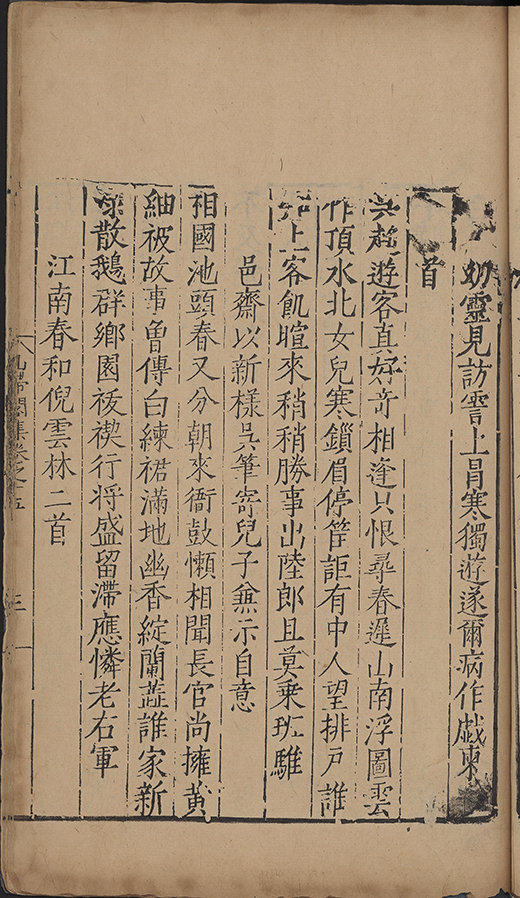 幼靈見訪霅上冒寒獨遊遂爾病作戯柬
首
吳趨遊客真好奇相逢只恨尋春遲山南浮圖雲
作頂水北女兒寒鎖眉停筇詎有中人望排戸誰
上客飢暄來稍稍勝事出陸郎且莫乗班騅
邑齋以新樣吳筆寄兒子兼示自意
相國池頭春又分朝來衙鼓懶相聞長官尚擁黃
紬被故事曾傳白練裙滿地幽香綻蘭蕋誰家新
漲散鵝群鄉園袚禊行將盛留滯應憐老右軍
江南春和倪雲林二首
集卷之五
三